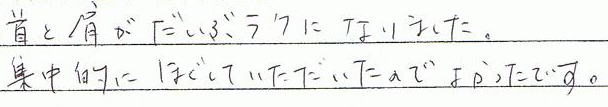 首と肩がだいぶラクになりました。
集中的にほぐしていただいたのでよかったです。